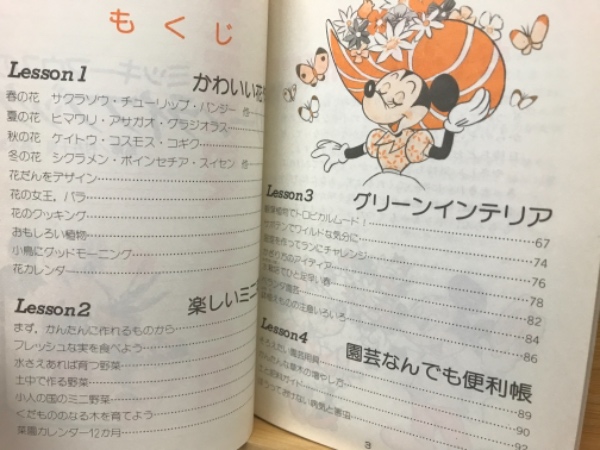 もくじ
Lesson1
かわいい花
春の花 サクラソウ・チューリップ・パンジー
夏の花 ヒマワリ・アサガオ・グラジオラス
秋の花 ケイトウ・コスモス・コギク
冬の花 シクラメン・ポインセチア・スイセン
花だんをデザイン
花の女王，バラ
花のクッキング
おもしろい植物
小鳥にグッドモーニング
花カレンダー
Lesson2
楽しいミニ
まず，かんたんに作れるものから
フレッシュな実を食べよう
水さえあれば育つ野菜
土中で作る野菜
小人の国のミニ野菜
くだもののなる木を育てよう
菜園カレンダー12か月
Lesson3
グリーンインテリア
でトロピカルムード！ 67
でワイルドな気分に 74
を作ってランにチャレンジ 76
のアイディア 78
でひと足早い春 82
84
いろいろ 86
Lesson4
園芸なんでも便利帳
89
の増やし方 90
ガイド 92
病気と害虫
3